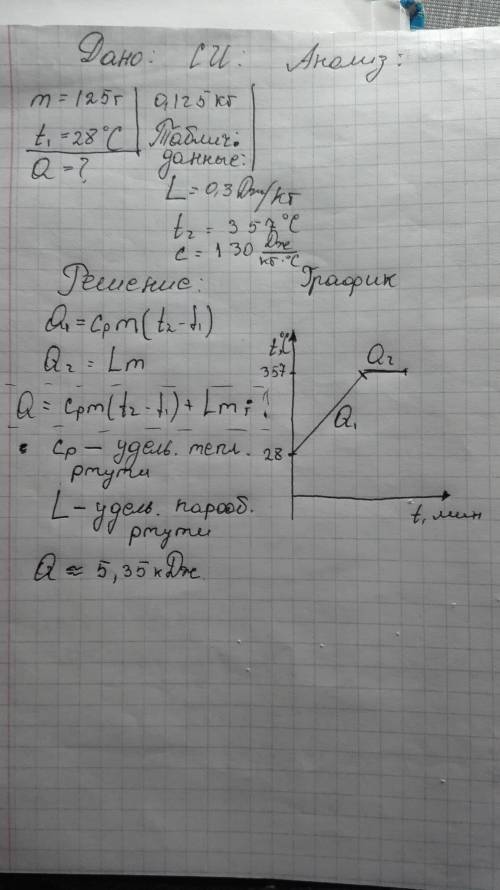 Дано: СИ: Анализ:
m = 125г 0,125кг
t₁ = 28°C Таблич. данные:
Q = ?
L = 0,3 Дж/кг
t₂ = 357°C
c = 130 Дж/кг·°C
Решение: График
Q₁ = cₚm(t₂-t₁)
Q₂ = Lm
Q = cₚm(t₂-t₁) + Lm;
cₚ – удель. тепл.
ртути
L – удель. парооб.
ртути
Q ≈ 5,35кДж
t°C
357
28
Q₂
Q₁
t, мин